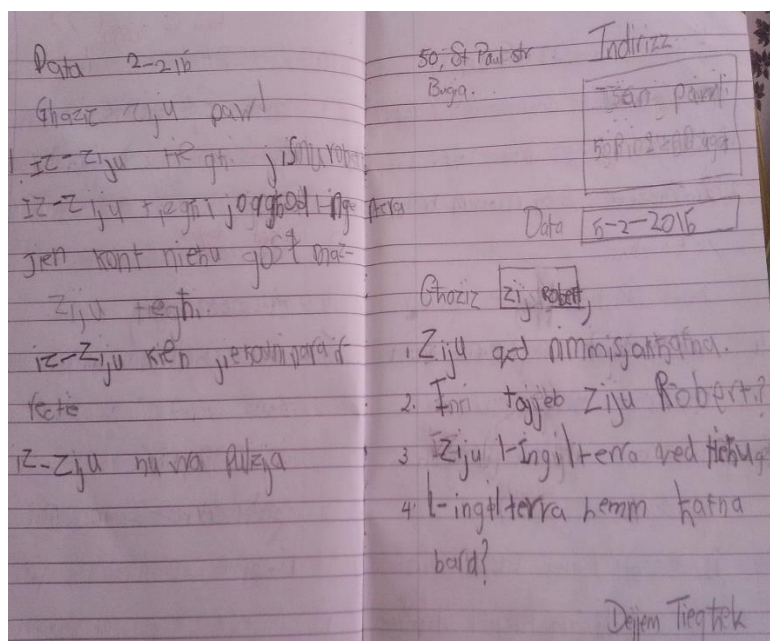 Data 2-216
Ghaziz ziju pawl
Iz-Ziju tie ghi jismu robe
Iz-Ziju tieghi joqghod l-inge terra
Jien kont niehu gost maz-
Ziju teghi.
iz-Ziju kien
iz-Ziju hu wa pulzja
50, St Paul str
Bugia.
Indirizz
san pawl
Data 5-2-2016
Ghaziz zij Robert,
1. Ziju qed nimmisjak hafna.
2. Inti tajjeb Ziju Robert?
3 Ziju l-Ingilterra qed tiehu g
4. l-ingilterra hemm hafna
bard?
Dejjem Tieghek